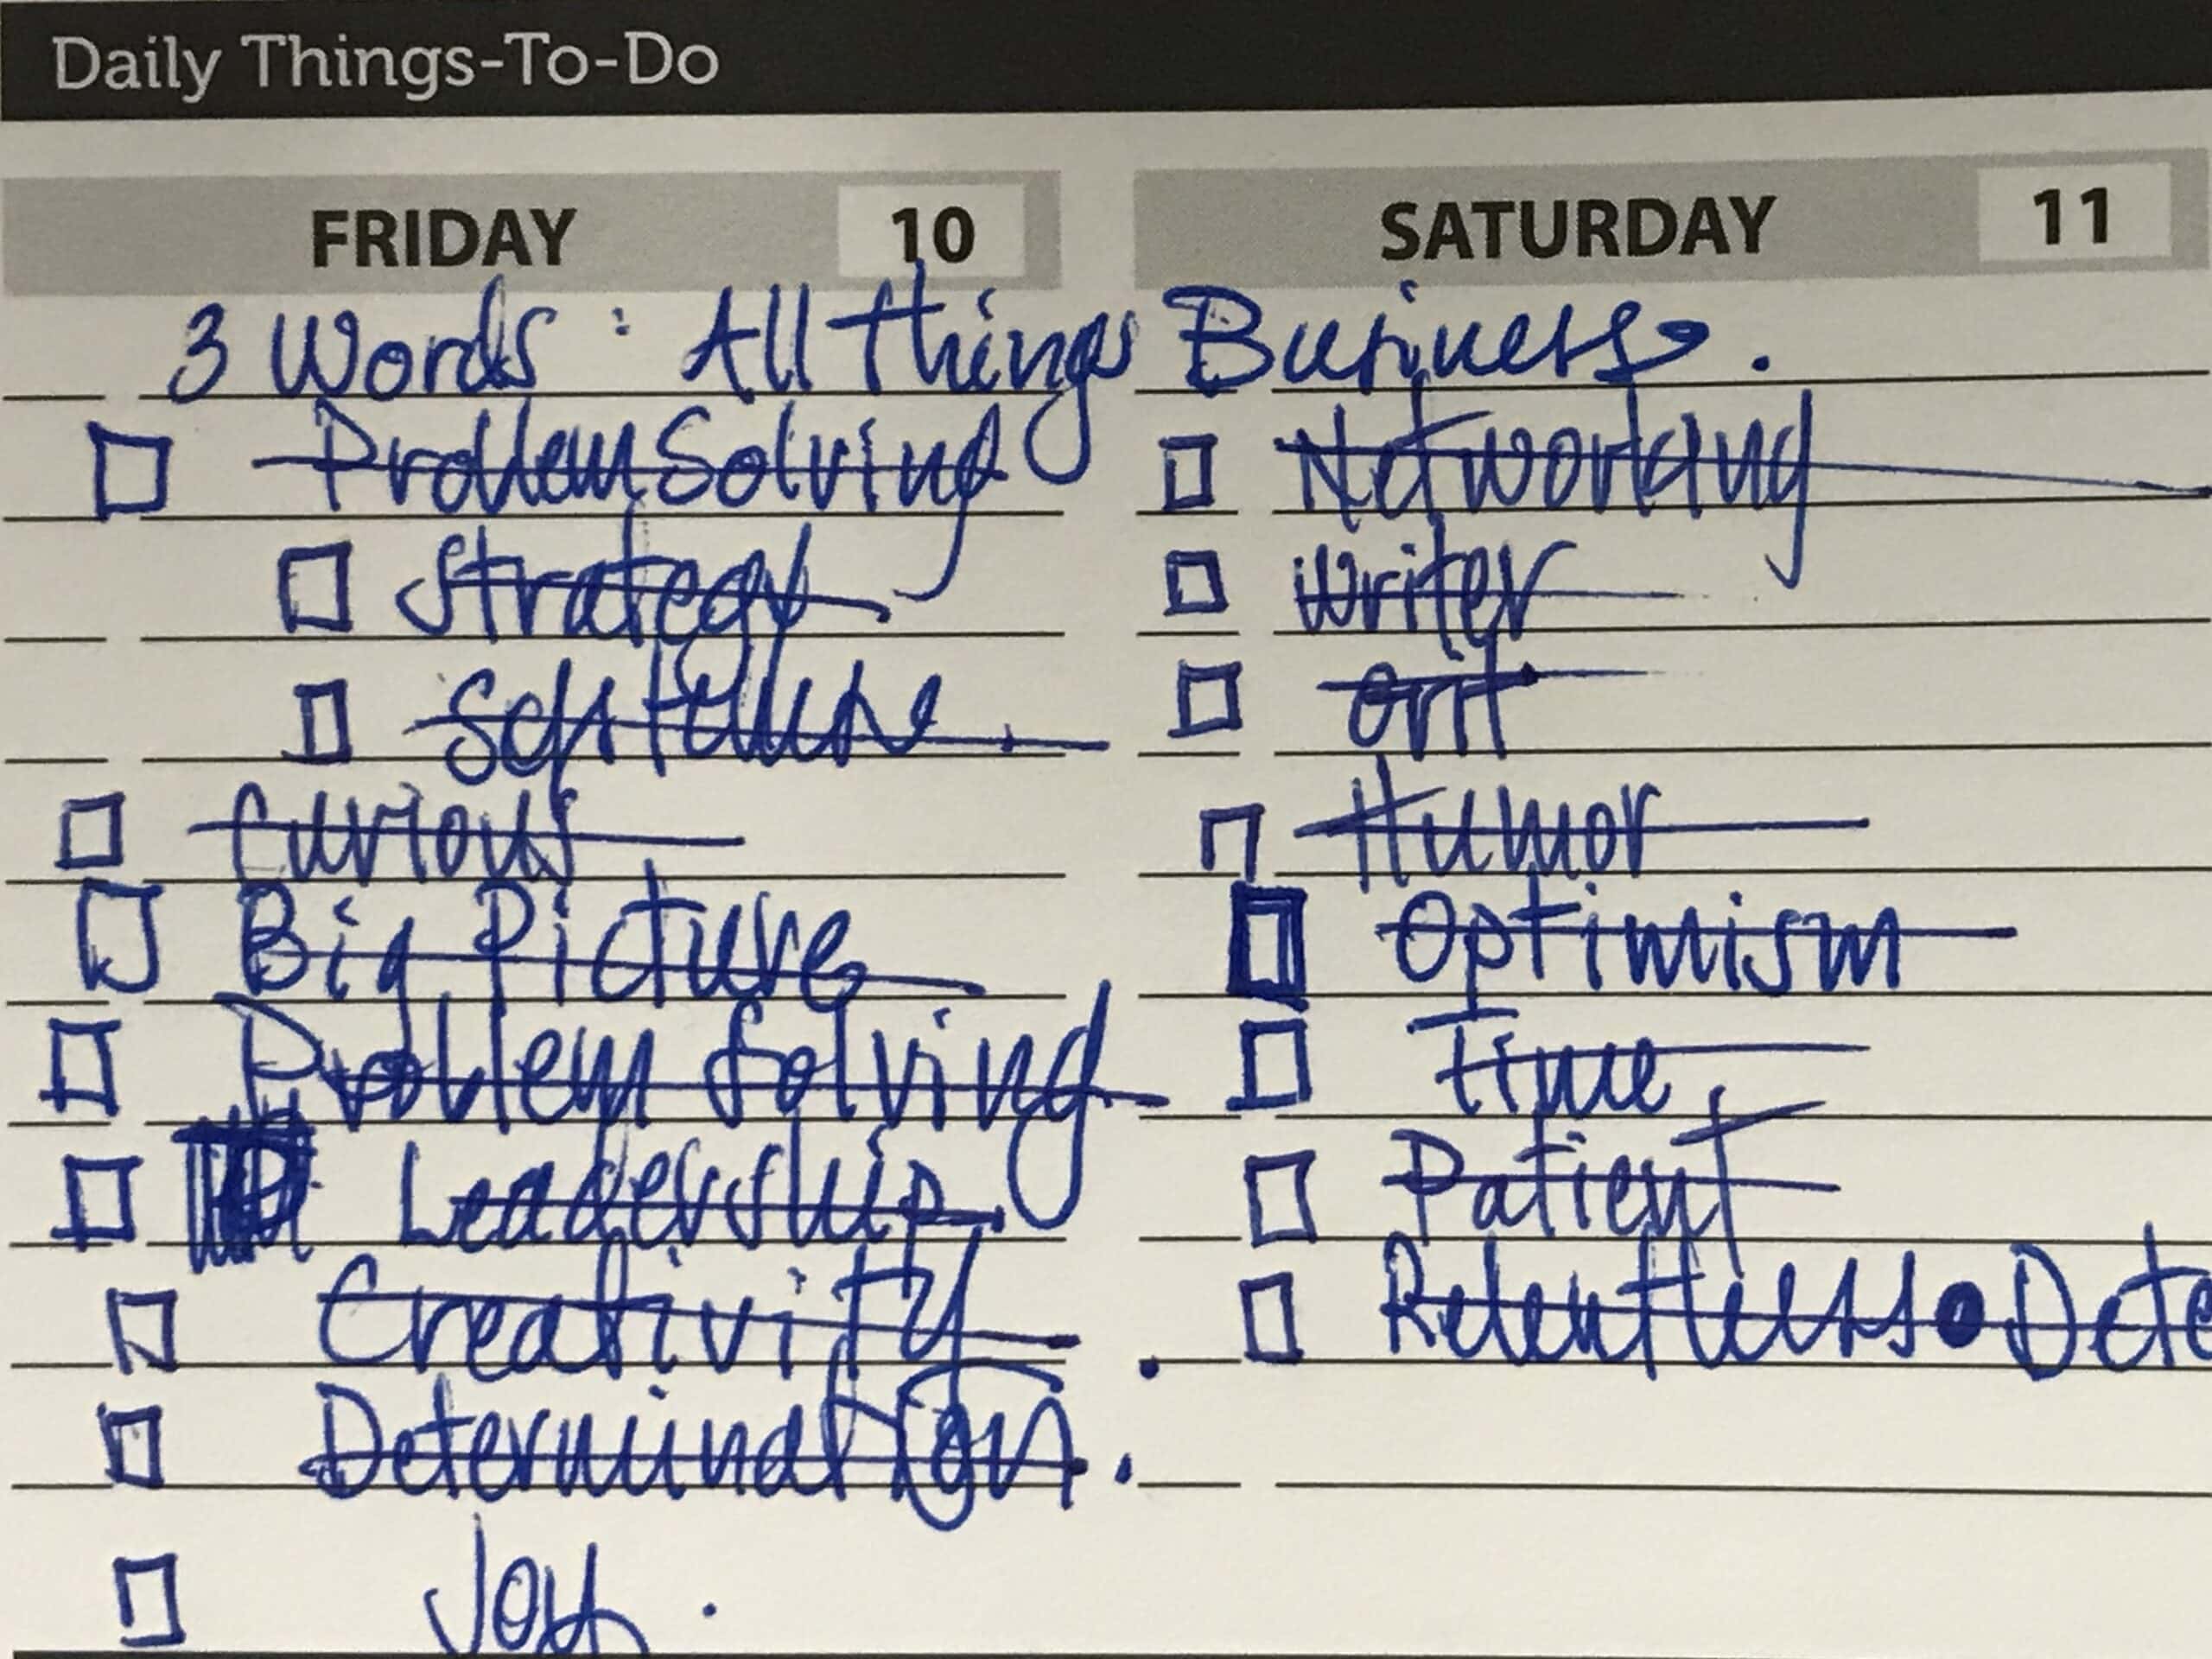 Daily Things-To-Do
FRIDAY 10
SATURDAY 11
3 Words: All things Business.
Problem Solving
Strategy
Curious
Big Picture
Problem Solving
Leadership
Creativity
Determination.
Joy.
Networking
Writer
Grit
Humor
Optimism
Time
Patient
Relentless Dete